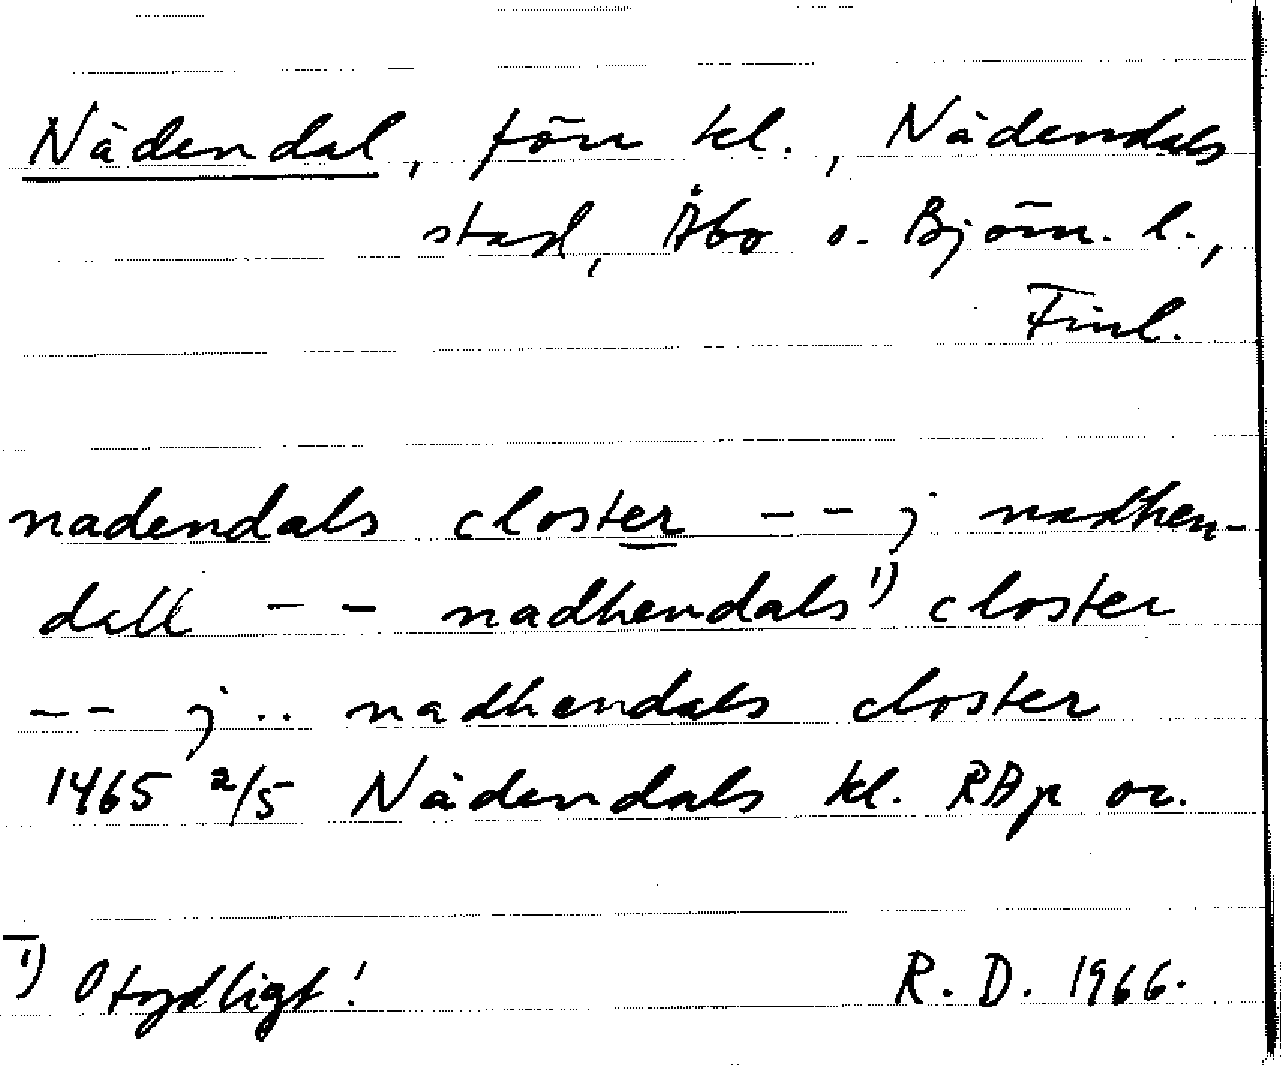 Nådendal, förr kl., Nådendals
stad, Åbo o. Björn. l.,
Finl.
nadendals closter -- j nadhen-
dall -- nadhendals¹⁾ closter
-- j .. nadhendals closter
1465 2/5 Nådendals kl. RAp or.
¹⁾ Otydligt!
R. D. 1966.